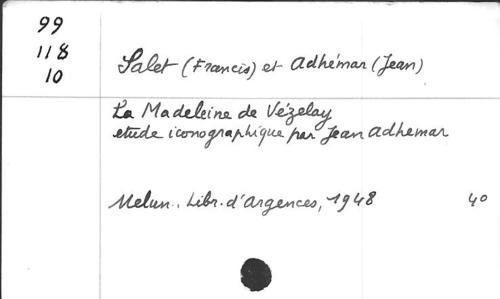 99
118
10
Salet (Francis) et Adhémar (Jean)
La Madeleine de Vézelay
etude iconographique par Jean Adhemar
Melun., Libr. d'Argences, 1948 40